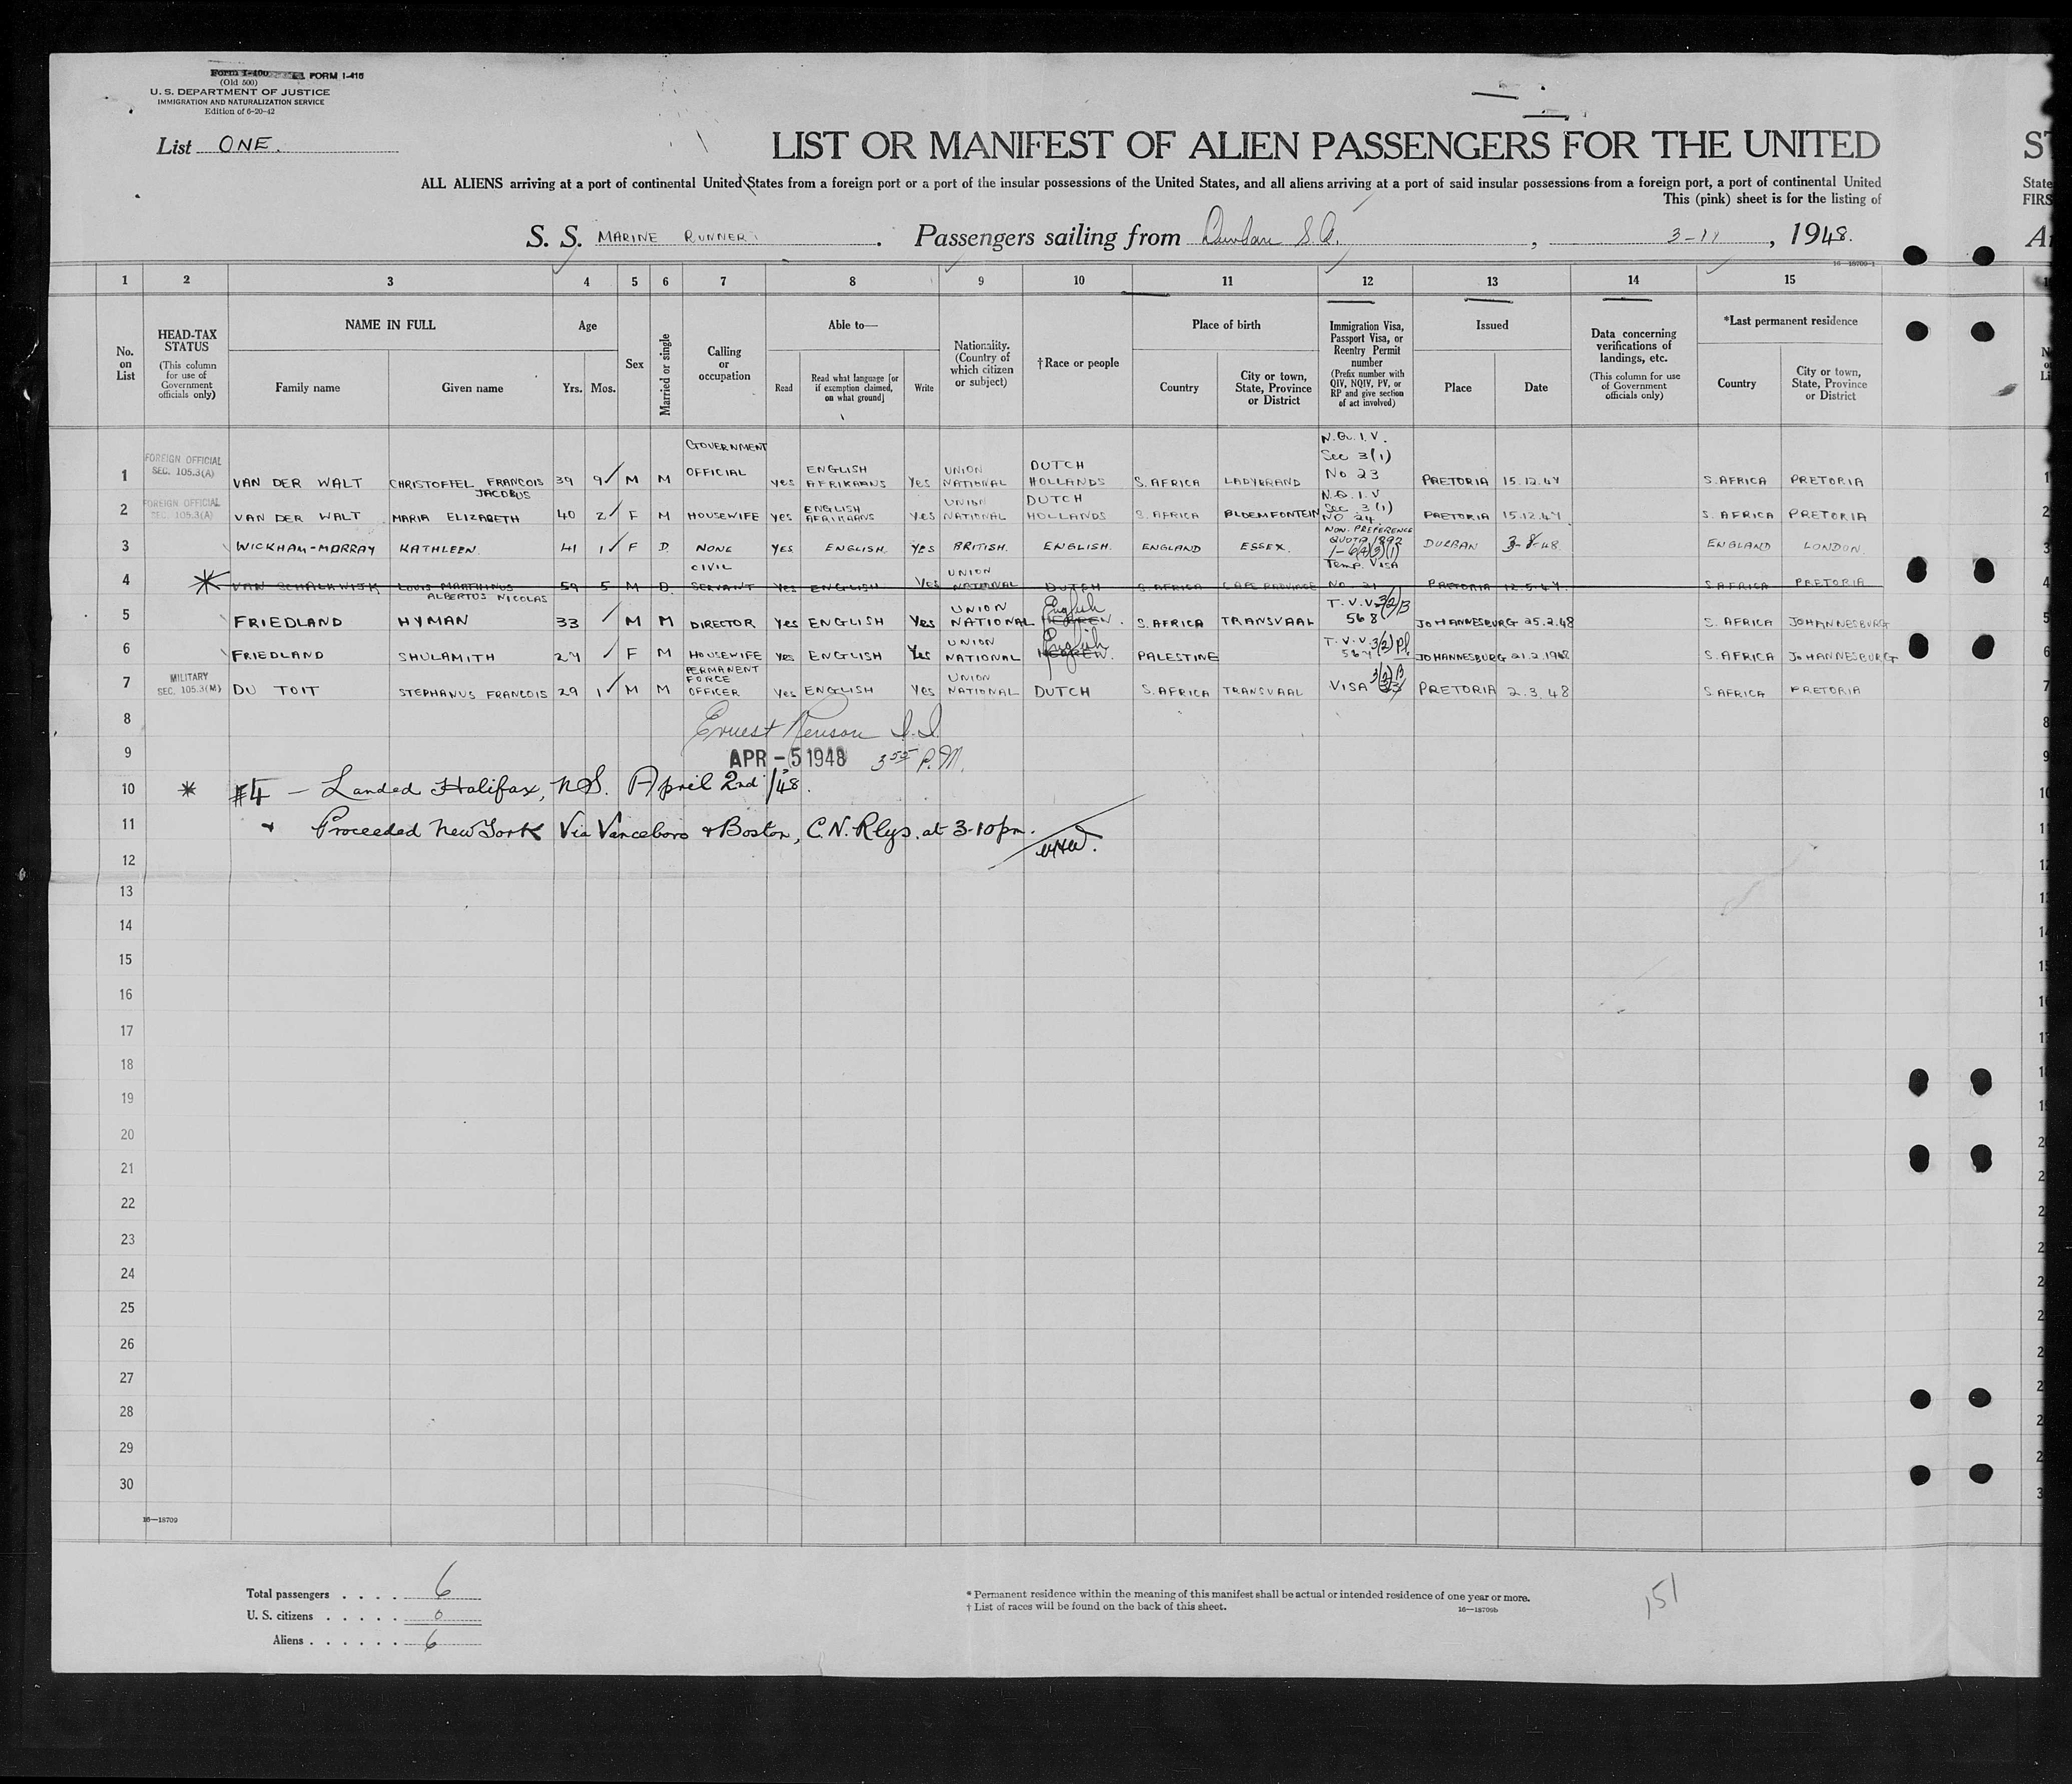 Form I-400 FORM I-415
(Old 500)
U. S. DEPARTMENT OF JUSTICE
IMMIGRATION AND NATURALIZATION SERVICE
Edition of 6-20-42
List ONE.
LIST OR MANIFEST OF ALIEN PASSENGERS FOR THE UNITED
ALL ALIENS arriving at a port of continental United States from a foreign port or a port of the insular possessions of the United States, and all aliens arriving at a port of said insular possessions from a foreign port, a port of continental United
This (pink) sheet is for the listing of
S. S. MARINE RUNNER . Passengers sailing from Durban S.A. , 3-11 , 1948.
16—18709-1
1 2 3 4 5 6 7 8 9 10 11 12 13 14 15
No. on List
HEAD-TAX STATUS
(This column for use of Government officials only)
NAME IN FULL
Family name Given name
Age
Yrs. Mos.
Sex
Married or single
Calling or occupation
Able to—
Read Read what language [or if exemption claimed, on what ground] Write
Nationality. (Country of which citizen or subject)
†Race or people
Place of birth
Country City or town, State, Province or District
Immigration Visa, Passport Visa, or Reentry Permit number
(Prefix number with QIV, NQIV, PV, or RP and give section of act involved)
Issued
Place Date
Data concerning verifications of landings, etc.
(This column for use of Government officials only)
*Last permanent residence
Country City or town, State, Province or District
1 FOREIGN OFFICIAL SEC. 105.3(A) VAN DER WALT CHRISTOFFEL FRANCOIS JACOBUS 39 9 M M GOVERNMENT OFFICIAL yes ENGLISH AFRIKAANS Yes UNION NATIONAL DUTCH HOLLANDS S. AFRICA LADYBRAND N.Q.I.V. Sec 3(1) No 23 PRETORIA 15.12.47 S. AFRICA PRETORIA
2 FOREIGN OFFICIAL SEC. 105.3(A) VAN DER WALT MARIA ELIZABETH 40 2 F M HOUSEWIFE yes ENGLISH AFRIKAANS Yes UNION NATIONAL DUTCH HOLLANDS S. AFRICA BLOEMFONTEIN N.Q.I.V Sec 3(1) NO 24 PRETORIA 15.12.47 S. AFRICA PRETORIA
3 WICKHAM-MORRAY KATHLEEN. 41 1 F D. NONE YES ENGLISH. Yes BRITISH. ENGLISH. ENGLAND ESSEX. NON. PREFERENCE QUOTA 1892 DURBAN 3-8-48 ENGLAND LONDON.
4 VAN SCHALKWIJK LOUIS MARTHINUS ALBERTUS NICOLAS 59 5 M D. CIVIL SERVANT Yes ENGLISH Yes UNION NATIONAL DUTCH S. AFRICA CAPE PROVINCE Temp. VISA No. 21 PRETORIA 12.5.47. S AFRICA PRETORIA
5 FRIEDLAND HYMAN 33 M M DIRECTOR Yes ENGLISH Yes UNION NATIONAL English HEBREW. S. AFRICA TRANSVAAL T.V.V. 3(2)B 568 JOHANNESBURG 25.2.48 S. AFRICA JOHANNESBURG
6 FRIEDLAND SHULAMITH 27 F M HOUSEWIFE Yes ENGLISH Yes UNION NATIONAL English HEBREW. PALESTINE T.V.V. 3(2) Pl. 567 JOHANNESBURG 21.2.1948 S. AFRICA JOHANNESBURG
7 MILITARY SEC. 105.3(M) DU TOIT STEPHANUS FRANCOIS 29 1 M M PERMANENT FORCE OFFICER Yes ENGLISH Yes UNION NATIONAL DUTCH S. AFRICA TRANSVAAL VISA 3(2)B PRETORIA 2.3.48 S AFRICA PRETORIA
8 Ernest Renson I.I.
9 APR -5 1948 3 55 P.M.
10 * #4 — Landed Halifax, N.S. April 2nd /48.
11 + Proceeded New York Via Vanceboro & Boston, C.N. Rlys. at 3-10 pm.
12
13
14
15
16
17
18
19
20
21
22
23
24
25
26
27
28
29
30
16—18709
Total passengers . . . . 6
U. S. citizens . . . . . 0
Aliens . . . . . . 6
* Permanent residence within the meaning of this manifest shall be actual or intended residence of one year or more.
† List of races will be found on the back of this sheet.
16—18709b
151